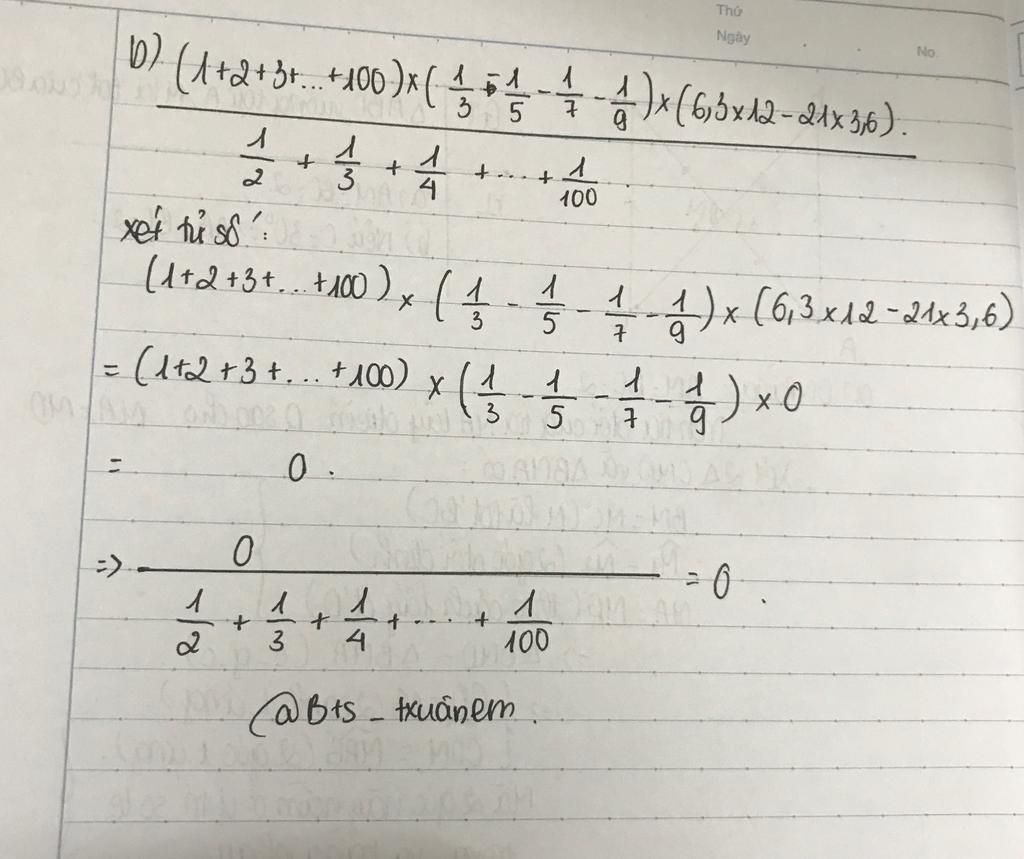 Thứ
Ngày . . No.
b) (1+2+3+...+100)×(1/3 - 1/5 - 1/7 - 1/9)×(6,3×12-21×3,6).
1/2 + 1/3 + 1/4 + ... + 1/100.
xét tử số:
(1+2+3+...+100) × (1/3 - 1/5 - 1/7 - 1/9) × (6,3×12-21×3,6)
= (1+2+3+...+100) × (1/3 - 1/5 - 1/7 - 1/9) × 0
= 0.
=> 0 = 0.
1/2 + 1/3 + 1/4 + ... + 1/100
@Bts_txuânem.